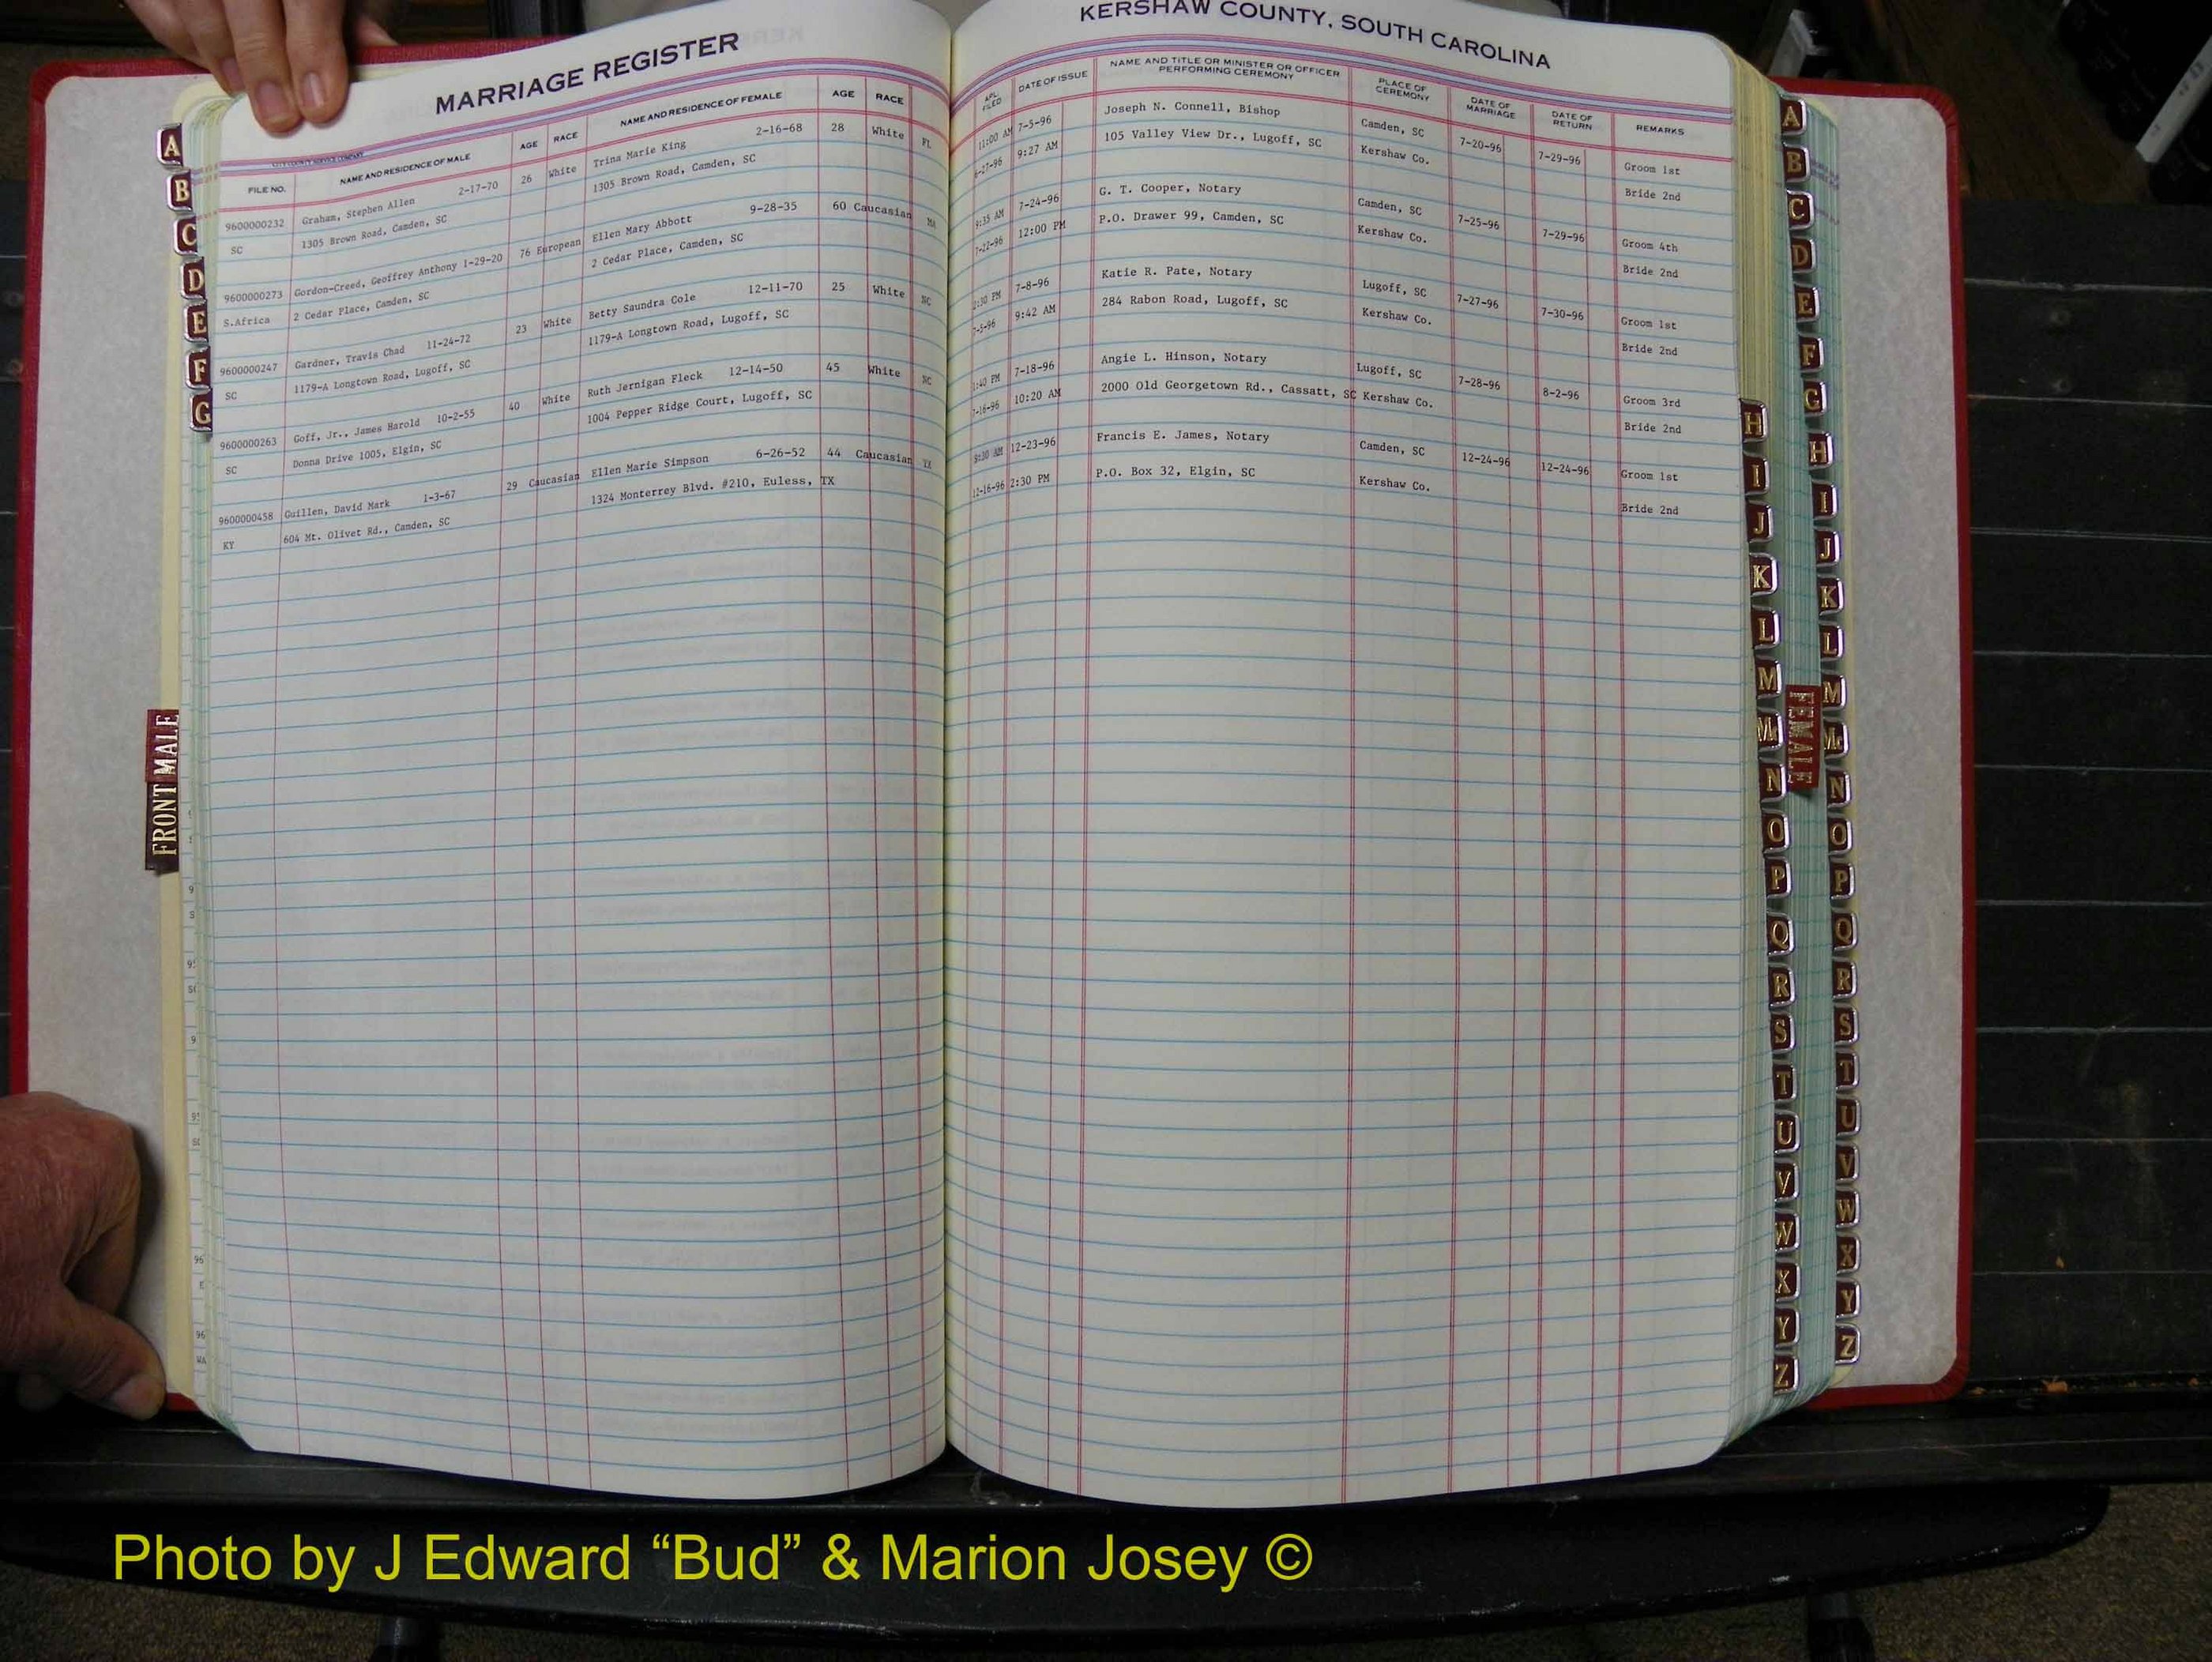 MARRIAGE REGISTER
FILE NO. NAME AND RESIDENCE OF MALE AGE RACE NAME AND RESIDENCE OF FEMALE AGE RACE
9600000232 Graham, Stephen Allen 2-17-70 26 White Trina Marie King 2-16-68 28 White FL
SC 1305 Brown Road, Camden, SC 1305 Brown Road, Camden, SC
9600000273 Gordon-Creed, Geoffrey Anthony 1-29-20 76 European Ellen Mary Abbott 9-28-35 60 Caucasian MA
S.Africa 2 Cedar Place, Camden, SC 2 Cedar Place, Camden, SC
9600000247 Gardner, Travis Chad 11-24-72 23 White Betty Saundra Cole 12-11-70 25 White SC
SC 1179-A Longtown Road, Lugoff, SC 1179-A Longtown Road, Lugoff, SC
9600000263 Goff, Jr., James Harold 10-2-55 40 White Ruth Jernigan Fleck 12-14-50 45 White SC
SC Donna Drive 1005, Elgin, SC 1004 Pepper Ridge Court, Lugoff, SC
9600000458 Guillen, David Mark 1-3-67 29 Caucasian Ellen Marie Simpson 6-26-52 44 Caucasian TX
KY 604 Mt. Olivet Rd., Camden, SC 1324 Monterrey Blvd. #210, Euless, TX
KERSHAW COUNTY, SOUTH CAROLINA
APL. FILED DATE OF ISSUE NAME AND TITLE OR MINISTER OR OFFICER PERFORMING CEREMONY PLACE OF CEREMONY DATE OF MARRIAGE DATE OF RETURN REMARKS
11:00 AM 7-5-96 Joseph N. Connell, Bishop Camden, SC 7-20-96 7-29-96 Groom 1st
6-27-96 9:27 AM 105 Valley View Dr., Lugoff, SC Kershaw Co. Bride 2nd
9:35 AM 7-24-96 G. T. Cooper, Notary Camden, SC 7-25-96 7-29-96 Groom 4th
7-22-96 12:00 PM P.O. Drawer 99, Camden, SC Kershaw Co. Bride 2nd
:30 PM 7-8-96 Katie R. Pate, Notary Lugoff, SC 7-27-96 7-30-96 Groom 1st
7-5-96 9:42 AM 284 Rabon Road, Lugoff, SC Kershaw Co. Bride 2nd
:40 PM 7-18-96 Angie L. Hinson, Notary Lugoff, SC 7-28-96 8-2-96 Groom 3rd
7-16-96 10:20 AM 2000 Old Georgetown Rd., Cassatt, SC Kershaw Co. Bride 2nd
:30 AM 12-23-96 Francis E. James, Notary Camden, SC 12-24-96 12-24-96 Groom 1st
12-16-96 2:30 PM P.O. Box 32, Elgin, SC Kershaw Co. Bride 2nd
A
B
C
D
E
F
G
FRONT MALE
H
I
J
K
L
M
Mc
N
O
P
Q
R
S
T
U
V
W
X
Y
Z
FEMALE
A
B
C
D
E
F
G
H
I
J
K
L
M
Mc
N
O
P
Q
R
S
T
U
V
W
X
Y
Z
Photo by J Edward “Bud” & Marion Josey ©